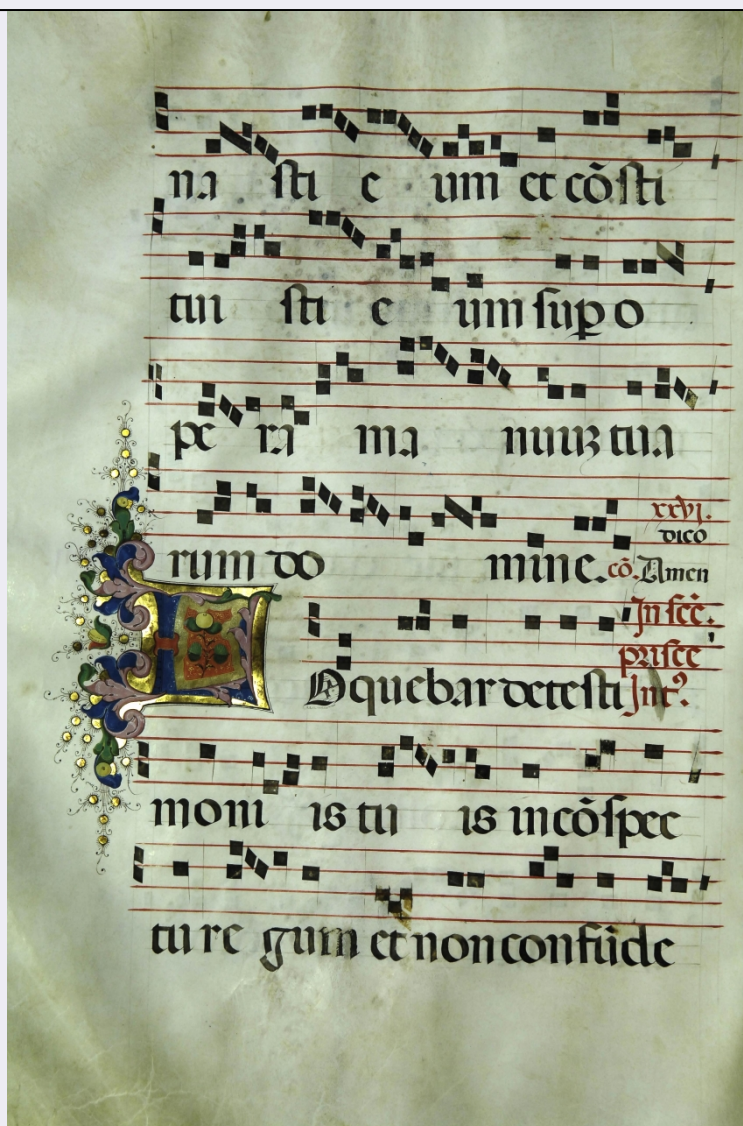 na sti e um et cõsti
tui sti e um sup o
pe ra ma nuuꝫ tua
rum do mine. cõ. Amen dico xxvi.
In scẽ. prisce Int⁹.
Loquebar de testi
moni is tu is in cõspec
tu re gum et non confũde